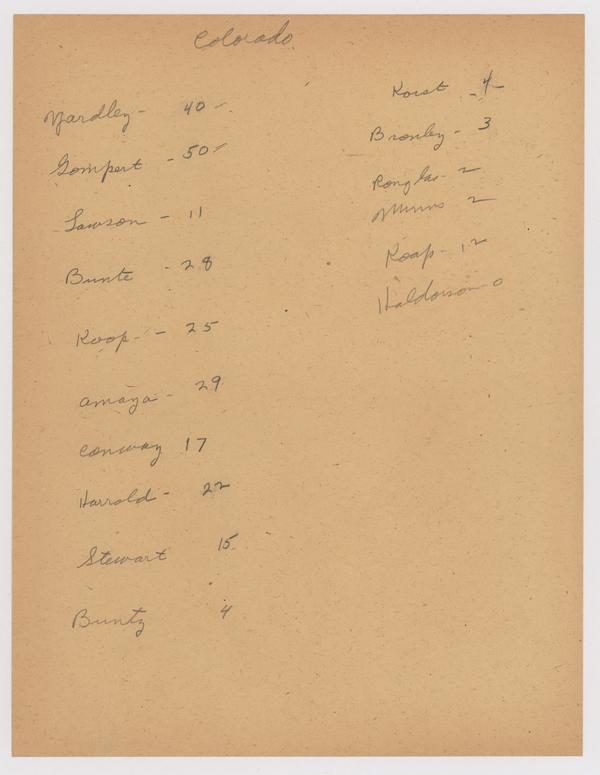 Colorado
Yardley - 40 -
Gompert - 50 -
Lawson - 11
Bunte - 28
Koop - - 25
Amaya - 29
Conway 17
Harrold - 22
Stewart 15
Buntz 4
Koist - 4 -
Bronley - 3
Ronglas - 2
2
Roap - 12
Haldorson - 0